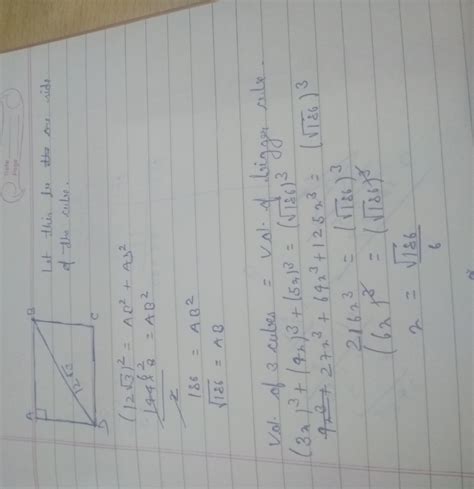 A B
12√3
D C
Let this be the one side
of the cube.
(12√3)² = AB² + AD²
= AB²
2
186 = AB²
√186 = AB
Vol. of 3 cubes = Vol. of bigger cube.
(3x)³ + (4x)³ + (5x)³ = (√186)³
27x³ + 64x³ + 125x³ = (√186)³
216x³ = (√186)³
(6x)³ = (√186)³
x = √186
6